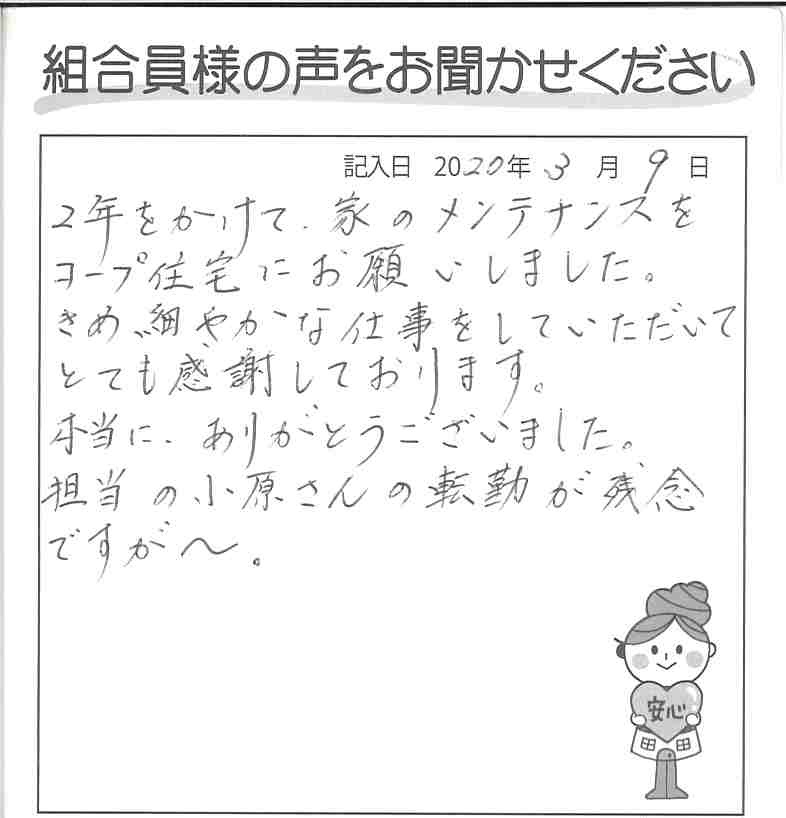 組合員様の声をお聞かせください
記入日 2020年 3 月 9 日
2年をかけて、家のメンテナンスを
コープ住宅にお願いしました。
きめ細やかな仕事をしていただいて
とても感謝しております。
本当に、ありがとうございました。
担当の小原さんの転勤が残念
ですが〜。
安心